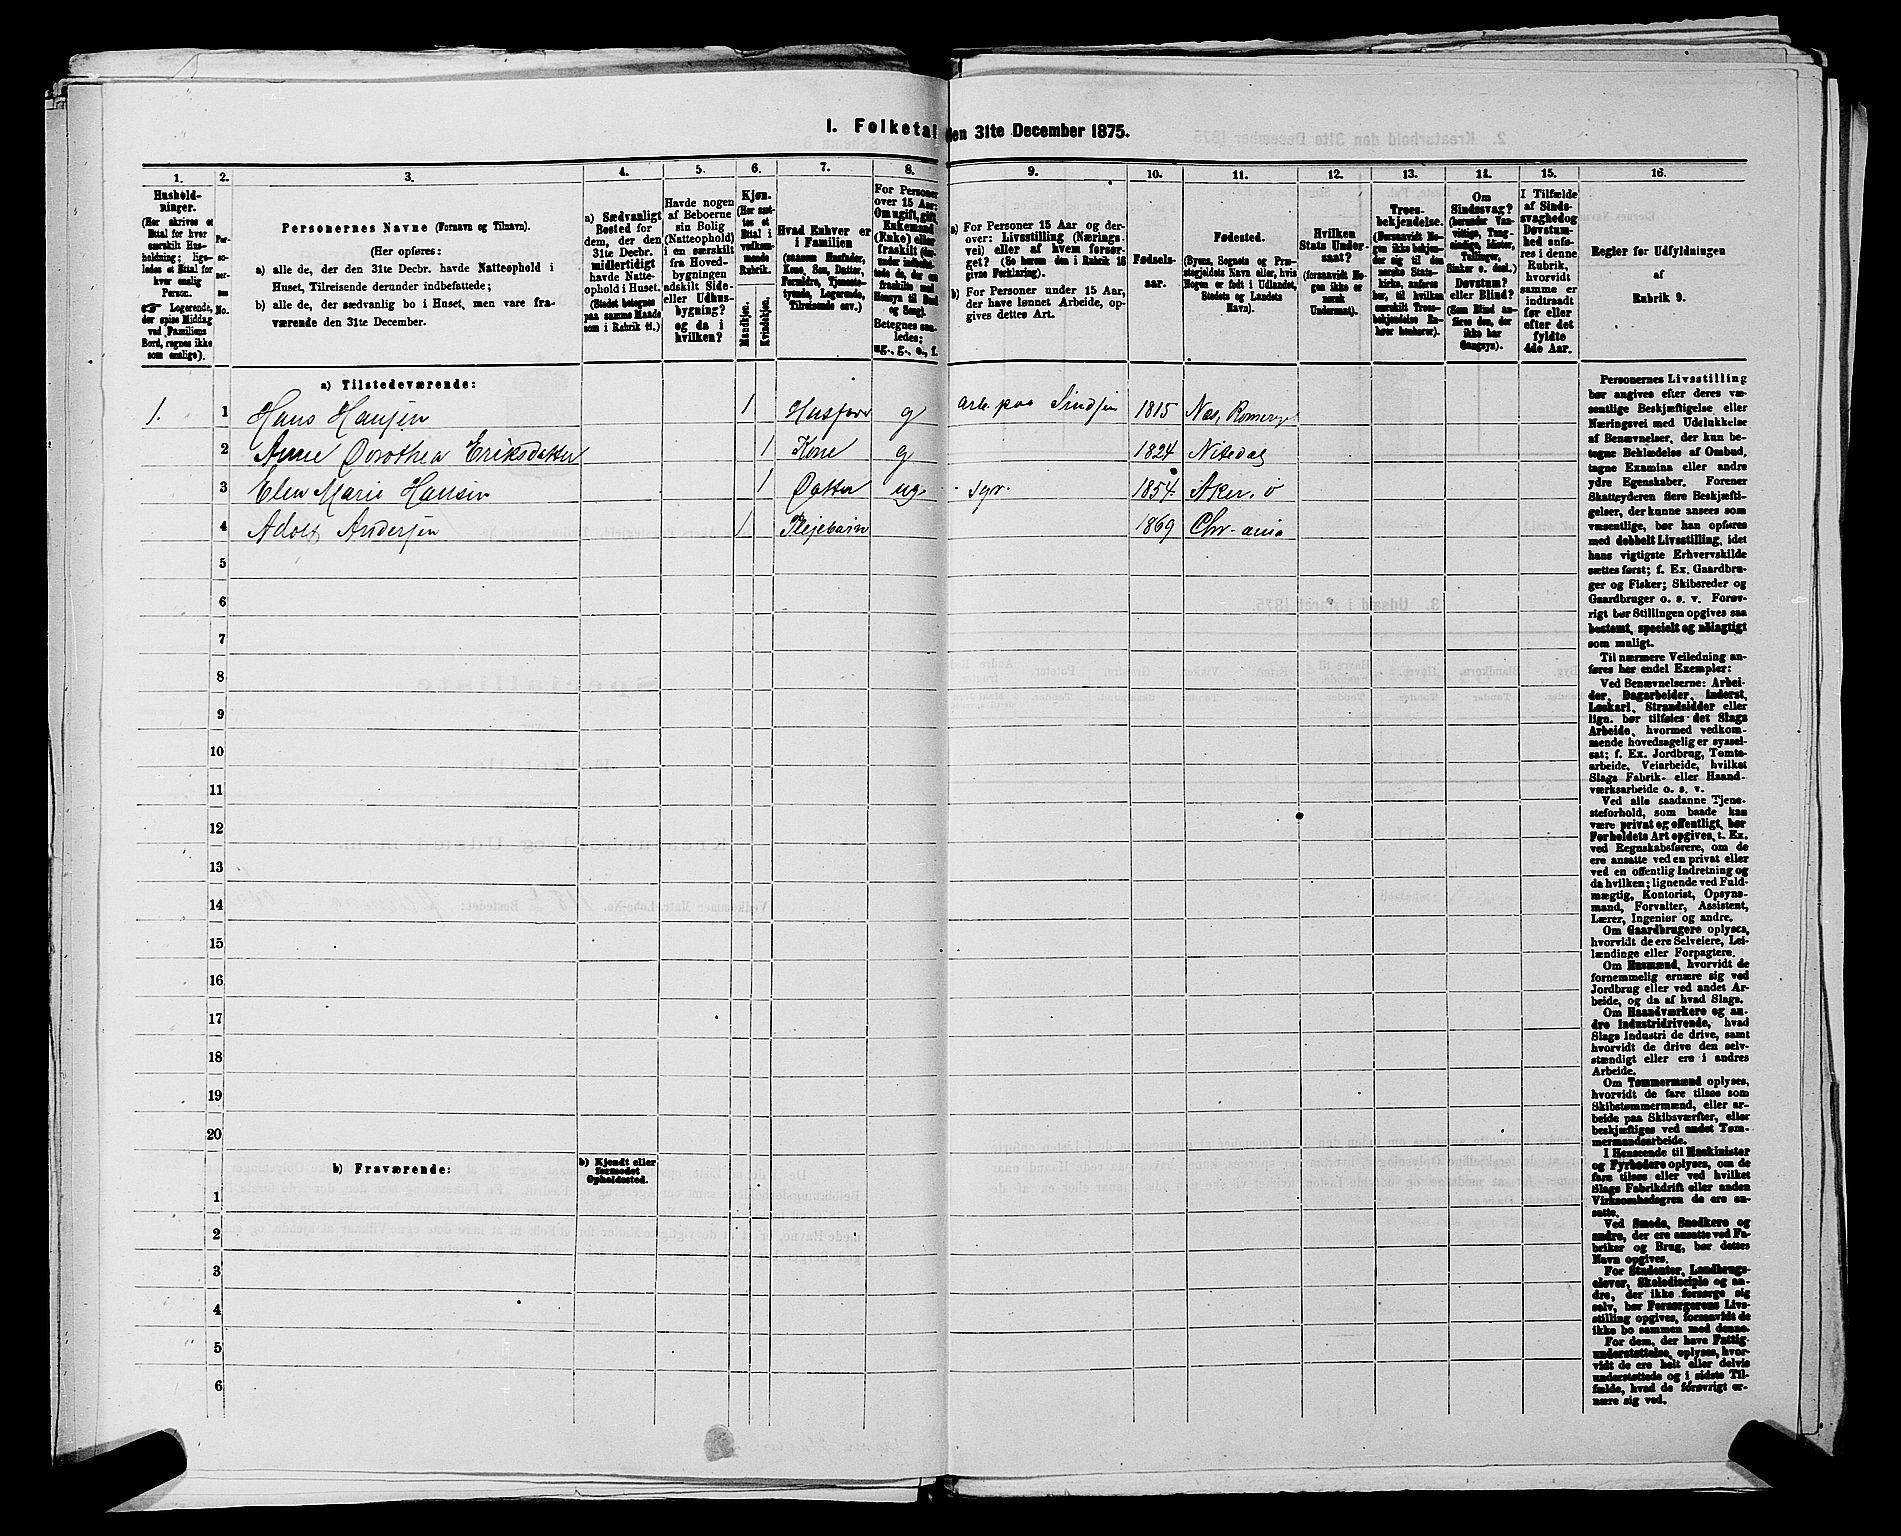 1. Folketal den 31te December 1875.
1. 2. 3. 4. 5. 6. 7. 8. 9. 10. 11. 12. 13. 14. 15. 16.
Hushold-
ninger.
(Her skrives et
Ettal for hver
særskilt Hus-
holdning; lige-
ledes et Ettal for
hver enslig
Person.
☛ Logerende,
der spise Middag
ved Familiens
Bord, regnes ikke
som enslige).
Per-
so-
ner-
nes
No.
Personernes Navne (Fornavn og Tilnavn).
(Her opføres:
a) alle de, der den 31te Decbr. havde Natteophold i
Huset, Tilreisende derunder indbefattede;
b) alle de, der sædvanlig bo i Huset, men vare fra-
værende den 31te December.
a) Sædvanligt
Bosted for
dem, der den
31te Decbr.
midlertidigt
havde Natte-
ophold i Huset.
(Stedet betegnes
paa samme Maade
som i Rubrik 11.)
Havde nogen
af Beboerne
sin Bolig
(Natteophold)
i en særskilt
fra Hoved-
bygningen
adskilt Side-
eller Udhus-
bygning?
og da i
hvilken?
Kjøn.
(Her sæt-
tes et
Ettal i
vedkom-
mende
Rubrik.
Mandkjøn.
Kvindekjøn.
Hvad Enhver er
i Familien
(saasom Husfader,
Kone, Søn, Datter,
Forældre, Tjeneste-
tyende, Logerende,
Tilreisende osv.)
For Personer
over 15 Aar:
Om ugift, gift,
Enkemand
(Enke) eller
fraskilt (her-
under indbefat-
tede de, der ere
fraskilte med
Hensyn til Bord
og Seng).
Betegnes saa-
ledes:
ug., g., e., f.
a) For Personer 15 Aar og der-
over: Livsstilling (Nærings-
vei) eller af hvem forsør-
get? (Se herom den i Rubrik 16
givne Forklaring).
b) For Personer under 15 Aar,
der have lønnet Arbeide, op-
gives dettes Art.
Fødsels-
aar.
Fødested.
(Byens, Sognets og Præ-
stegjeldets Navn eller, hvis
Nogen er født i Udlandet,
Stedets og Landets
Navn).
Hvilken
Stats Under-
saat?
(forsaavidt No-
gen ikke er
norsk
Undersaat).
Troes-
bekjendelse.
(Forsaavidt No-
gen ikke bekjen-
der sig til den
norske Stats-
kirke, anføres
her, til hvilken
særskilt Troes-
bekjendelse En-
hver henhører).
Om
Sindssvag?
(herunder Van-
vittige, Tung-
sindige, Idioter,
Tullinger,
Sinker o. desl.)
Døvstum?
eller Blind?
(Som Blind an-
føres den, der
ikke har
Gangsyn).
I Tilfælde
af Sinds-
svaghed og
Døvstum-
hed anfø-
res i denne
Rubrik,
hvorvidt
samme er
indtraadt
før eller
efter det
fyldte
4de Aar.
Regler for Udfyldningen
af
Rubrik 9.
a) Tilstedeværende:
1. 1 Hans Hansen 1 Husfader g arb. paa 1815 Næs, Romerige
2 Anne Dorothea Eriksdatter 1 Kone g 1824 Nitedal
3 Elen Marie Hansen 1 Datter ug. Syr. 1854 Aker.
4 Adolf Andersen 1 Plejebarn 1869 Chr-ania
5
6
7
8
9
10
11
12
13
14
15
16
17
18
19
20
b) Fraværende:
b) Kjendt eller
formodet
Opholdssted.
1
2
3
4
5
6
Personernes Livsstilling
bør angives efter deres væ-
sentlige Beskjæftigelse eller
Næringsvei med Udelukkelse
af Benævnelser, der kun be-
tegne Beklædelse af Ombud,
tagne Examina eller andre
ydre Egenskaber. Forener
Skatteyderen flere Beskjæfti-
gelser, der kunne ansees som
væsentlige, bør han opføres
med dobbelt Livsstilling, idet
hans vigtigste Erhvervskilde
sættes først; f. Ex. Gaardbru-
ger og Fisker; Skibsreder og
Gaardbruger o. s. v. Forøv-
rigt bør Stillingen opgives saa
bestemt, specielt og nøiagtigt
som muligt.
Til nærmere Veiledning an-
føres her endel Exempler:
Ved Benævnelserne: Arbei-
der, Dagarbeider, Inderst,
Løskarl, Strandsidder eller
lign. bør tilføies det Slags
Arbeide, hvormed vedkom-
mende hovedsagelig er syssel-
sat; f. Ex. Jordbrug, Tømte-
arbeide, Veiarbeide, hvilket
Slags Fabrik- eller Haand-
værksarbeide o. s. v.
Ved alle saadanne Tjene-
steforhold, som baade kan
være privat og offentligt, bør
Forholdets Art opgives, t. Ex.
ved Regnskabsførere, om de
ere ansatte ved en privat eller
ved en offentlig Indretning og
da hvilken; lignende ved Fuld-
mægtig, Kontorist, Opsyns-
mand, Forvalter, Assistent,
Lærer, Ingeniør og andre.
Om Gaardbrugere oplyses,
hvorvidt de ere Selveiere, Lei-
lændinge eller Forpagtere.
Om Husmænd, hvorvidt de
fornemmelig ernære sig ved
Jordbrug eller ved andet Ar-
beide, og da af hvad Slags.
Om Haandværkere og an-
dre Industridrivende, hvad
Slags Industri de drive, samt
hvorvidt de drive den selv-
stændigt eller ere i andres
Arbeide.
Om Tømmermænd oplyses,
hvorvidt de fare tilsøs som
Skibstømmermænd, eller ar-
beide paa Skibsværfter, eller
beskjæftiges ved andet Tøm-
mermandsarbeide.
I Henseende til Maskinister
og Fyrbødere oplyses, om de
fare tilsøs eller ved hvilket
Slags Fabrikdrift eller anden
Virksomhedsgren de ere an-
satte.
Ved Smede, Snedkere og
andre, der ere ansatte ved Fa-
briker og Brug, bør dettes
Navn opgives.
For Studenter, Landbrugs-
elever, Skoledisciple og an-
dre, der ikke forsørge sig
selv, bør Forsørgerens Livs-
stilling opgives, forsaavidt de
ikke bo sammen med denne.
For dem, der have Fattig-
understøttelse, oplyses, hvor-
vidt de ere helt eller delvis
understøttede og i sidste Til-
fælde, hvad de forøvrigt er-
nære sig ved.